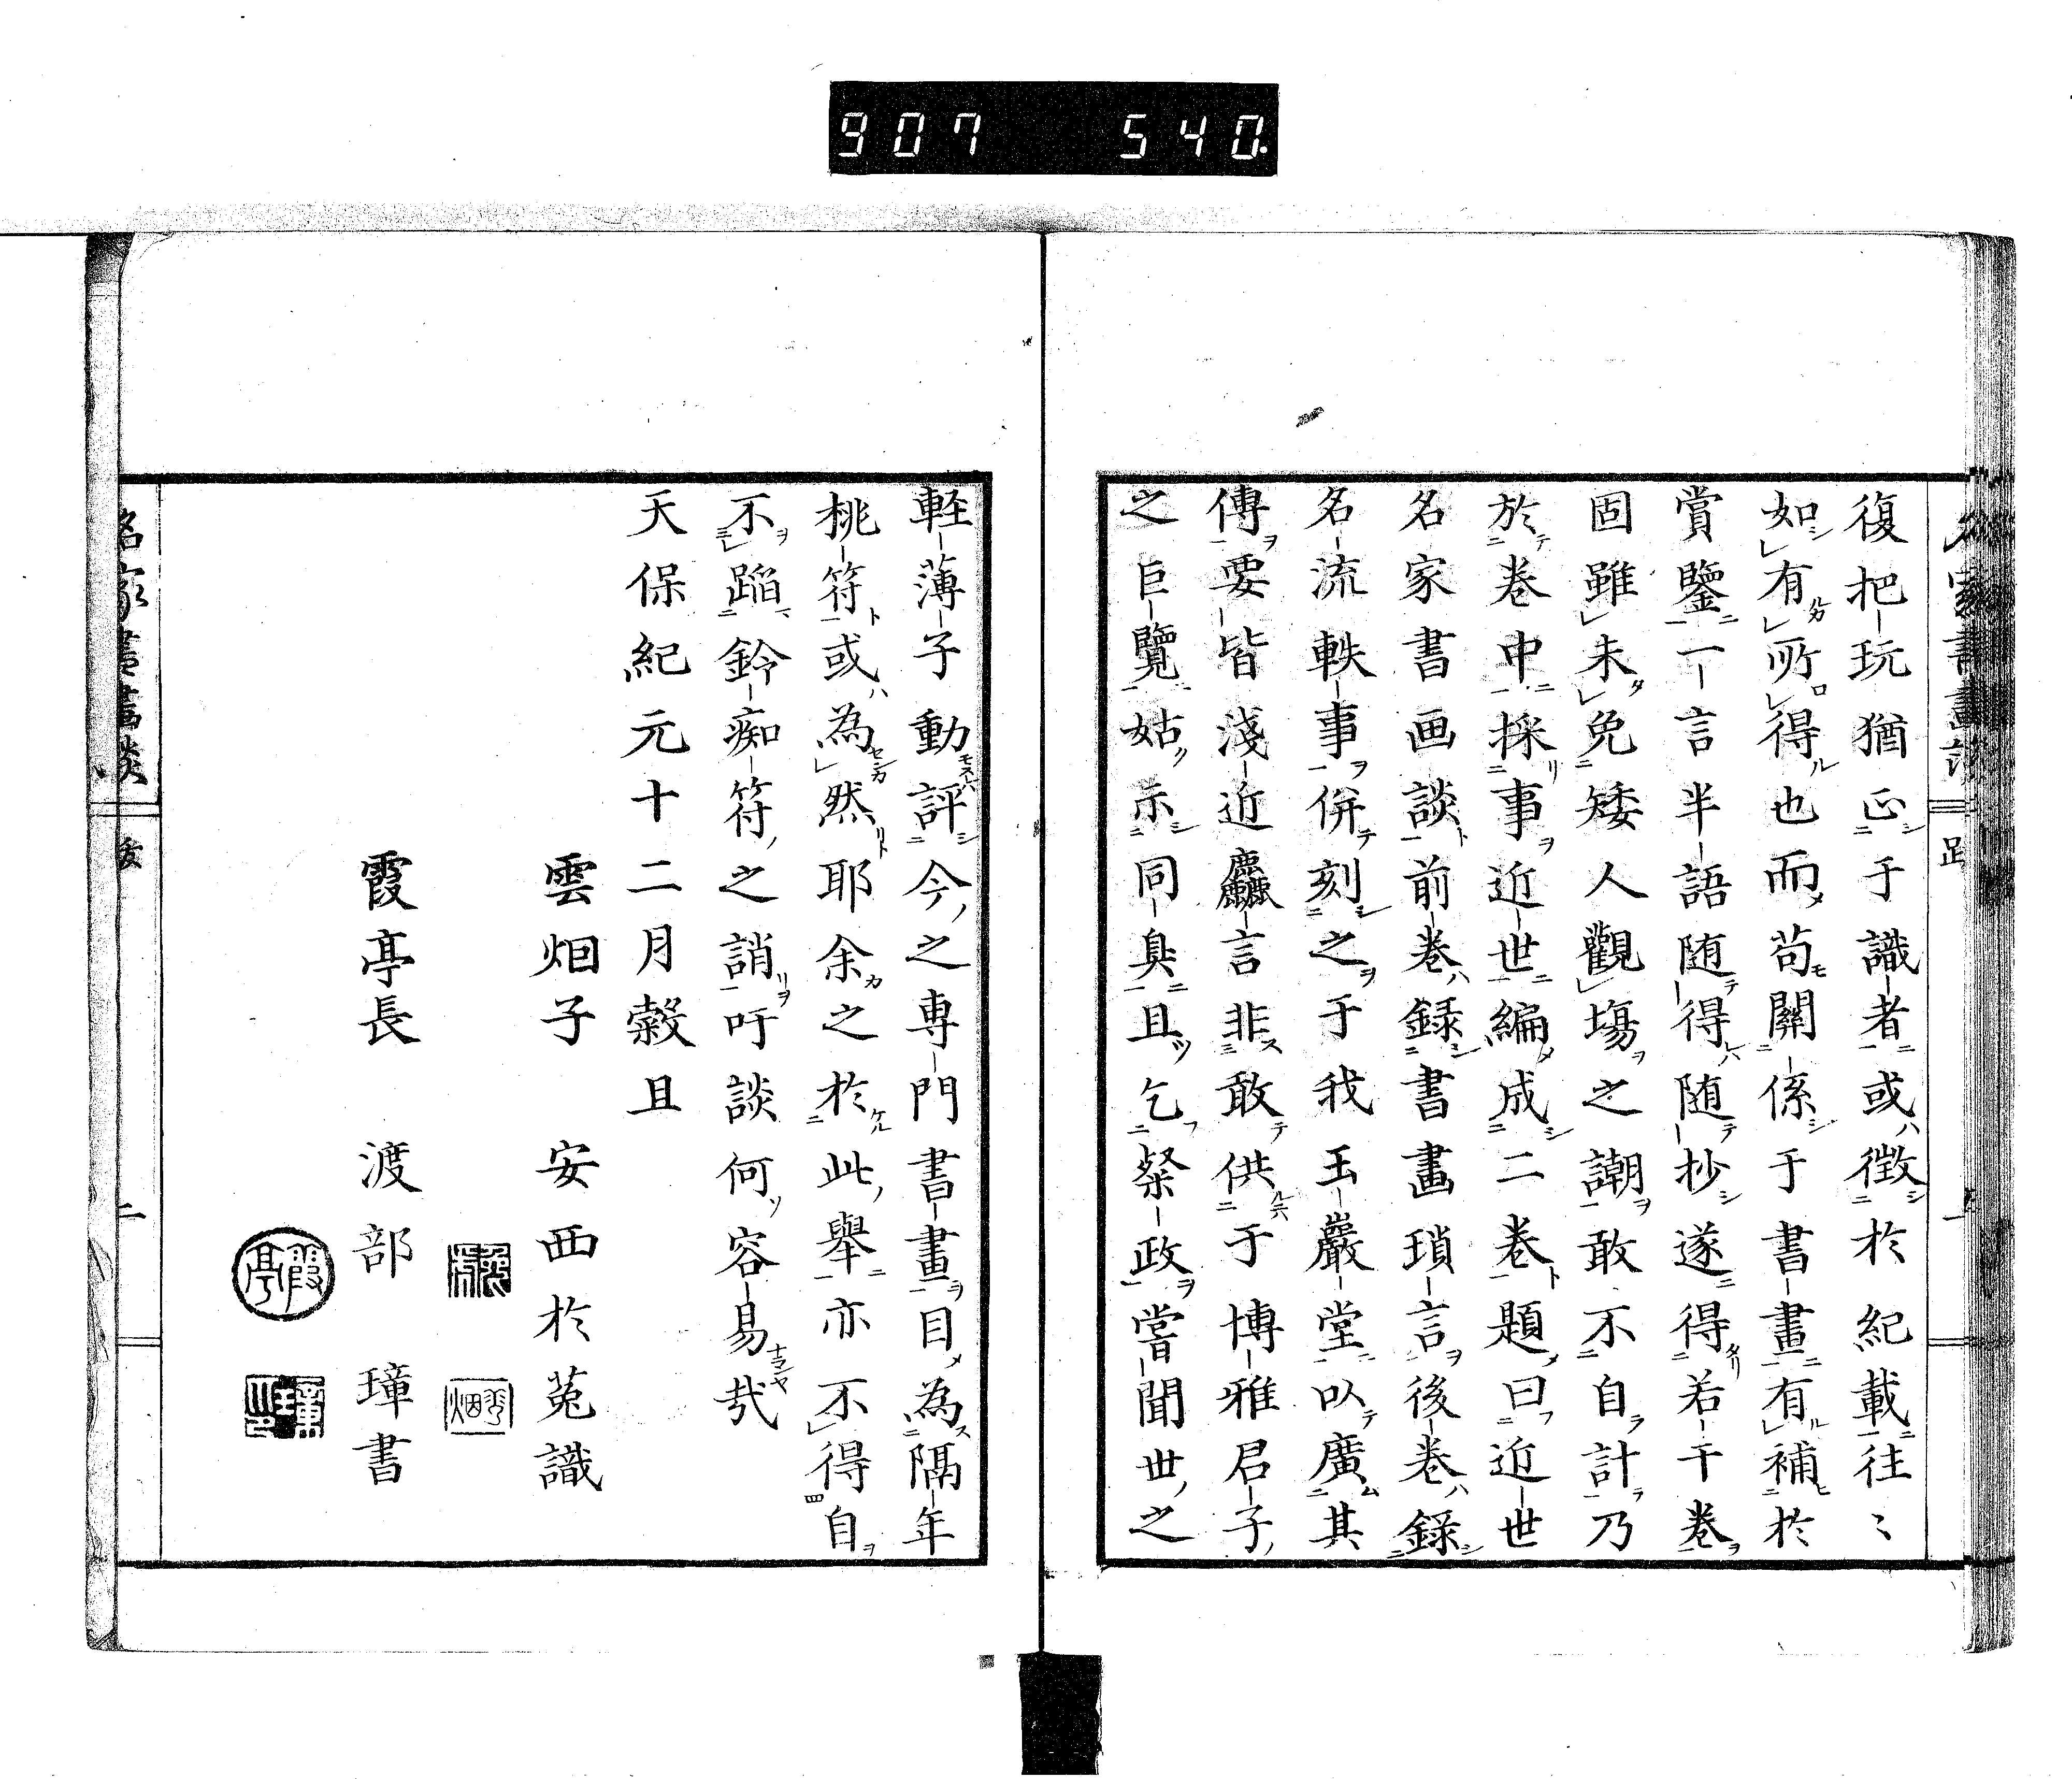 907 540.
名家書畫談
跋
復把玩猶正于識者或徴於紀載往〻
如有所得也而苟關係于書畫有補於
賞鑒一言半語随得随抄遂得若干巻
固雖未免矮人觀場之謿敢不自計乃
於巻中採事近世編成二巻題曰近世
名家書画談前巻録書畫瑣言後巻録
名流軼事併刻之于我玉巖堂以廣其
傳要皆淺近麤言非敢供于博雅君子
之巨覽姑示同臭且乞粲政嘗聞世之
軽薄子動評今之専門書畫目為隔年
桃符或為然耶余之於此舉亦不得自
不蹈鈴痴符之誚吁談何容易哉
天保紀元十二月穀旦
雲烟子 安西於菟識
霞亭長 渡部璋書
霞亭
名家書畫談
二